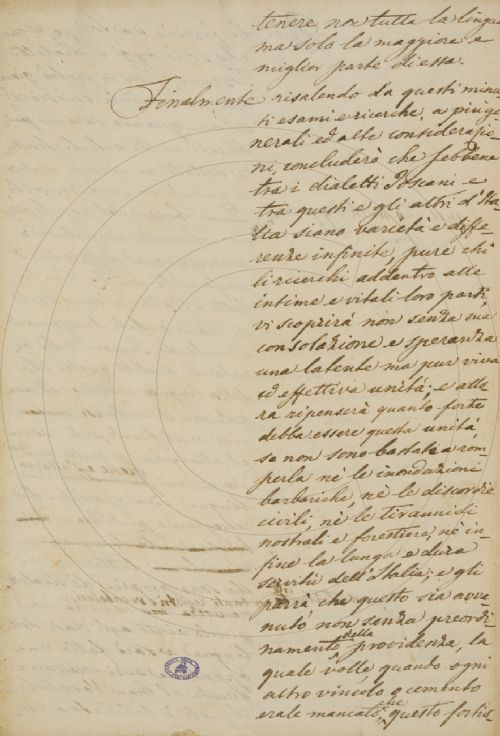 tenere non tutta la lingua
ma solo la maggiore e
miglior parte di essa.
Finalmente risalendo da questi minu
ti esami e ricerche, a più ge-
nerali ed alte considerazio-
ni, concluderà che sebbene
tra i dialetti Toscani e
tra questi e gli altri d'Ita-
lia siano varietà e diffe-
renze infinite, pure chi
li ricerchi addentro alle
intime e vitali loro parti,
vi scoprirà non senza sua
consolazione e speranza
una latente ma pur viva
ed effettiva unità; e allo-
ra ripenserà quanto forte
debba essere questa unità,
se non sono bastate a rom-
perla nè le inondazioni
barbariche, nè le discordie
civili, nè le tirannidi
nostrali e forestiere, nè in-
fine la lunga e dura
servitù dell'Italia; e gli
parrà che questo sia avve-
nuto non senza preordi-
namento della providenza, la
quale volle, quando ogni
altro vincolo o cemento
erale mancato, che questo fortis-